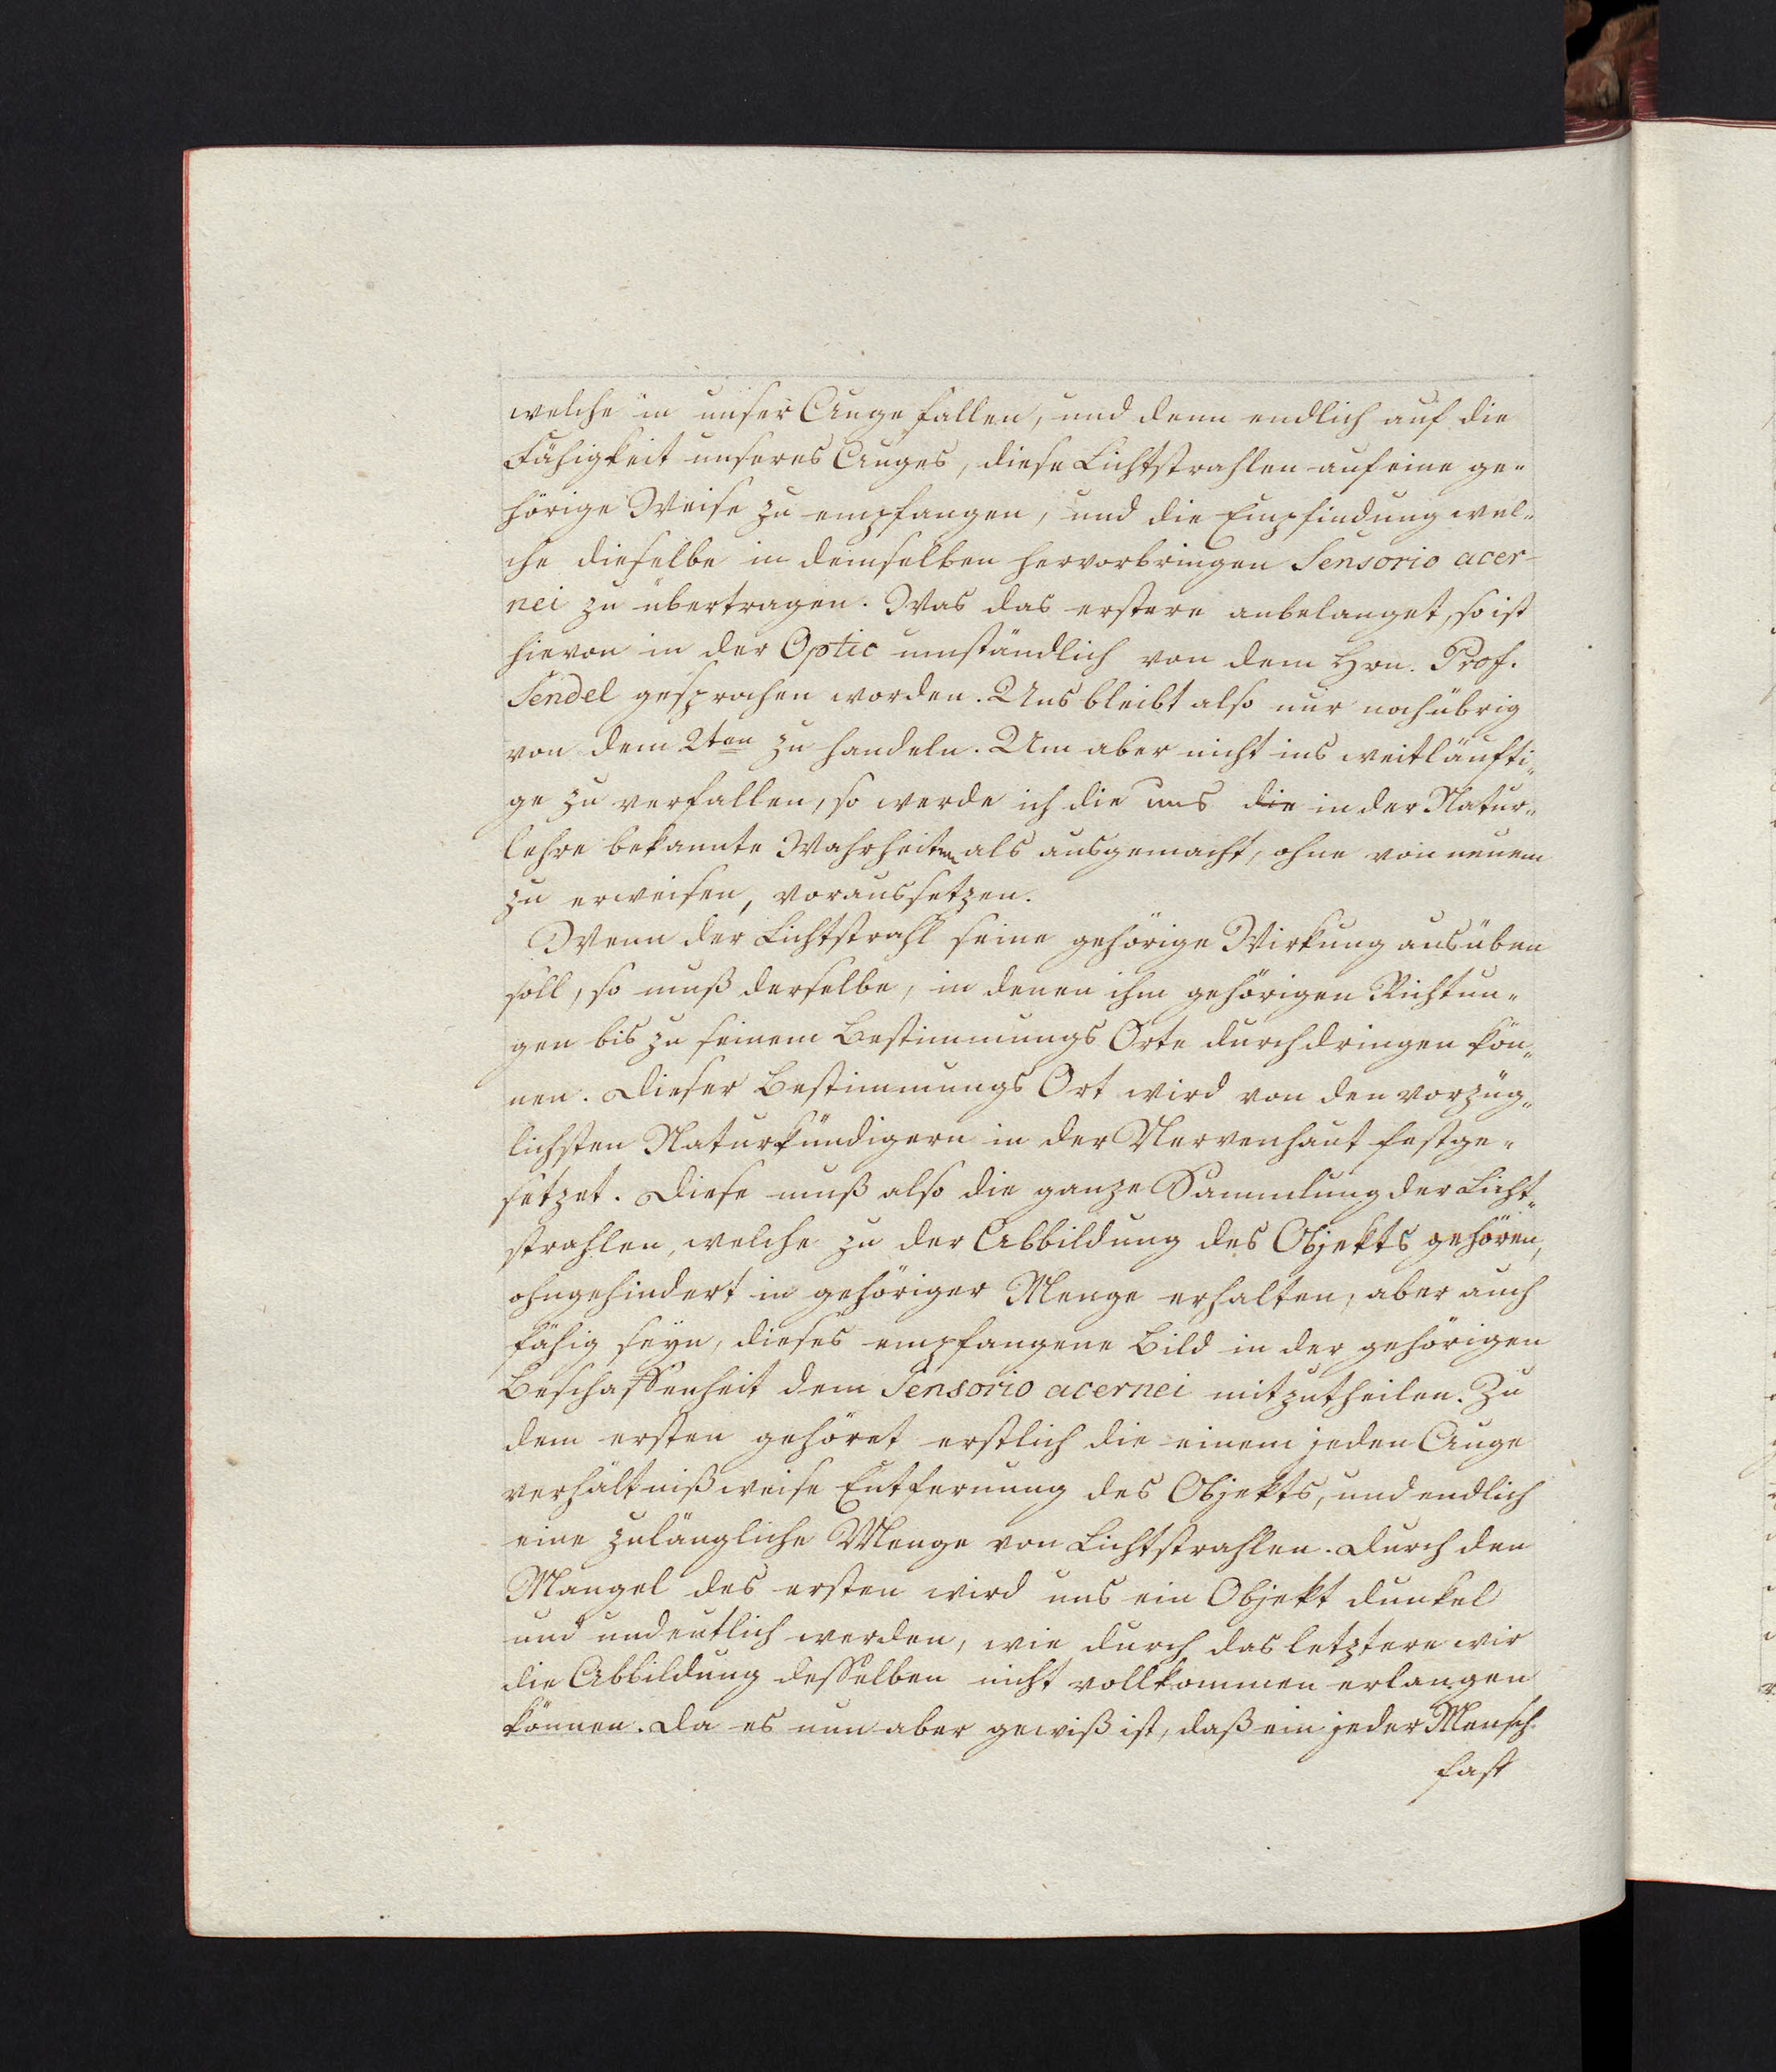 welche in unser Auge fallen, und denn endlich auf die
Fähigkeit unseres Auges, diese Lichtstrahlen auf eine ge-
hörige Weise zu empfangen, und die Empfindung wel-
che dieselbe in demselben hervorbringen Sensorio acer-
nei zu übertragen. Was das erstere anbelanget, so ist
hievon in der Optic umständlich von dem Hrn. Prof.
Sendel gesprochen worden. Uns bleibt also nur noch übrig
von dem 2ten zu handeln. Um aber nicht ins weitläufti-
ge zu verfallen, so werde ich die uns die in der Natur-
lehre bekannte Wahrheiten als ausgemacht, ohne von neuem
zu erweisen, voraussetzen.
Wenn der Lichtstrahl seine gehörige Wirkung ausüben
soll, so muß derselbe, in denen ihm gehörigen Richtun-
gen bis zu seinem Bestimmungs Orte durchdringen kön-
nen. Dieser Bestimmungs Ort wird von den vorzüg-
lichsten Naturkündigern in der Nervenhaut festge-
setzet. Diese muß also die ganze Sammlung der Licht-
strahlen, welche zu der Abbildung des Objekts gehören,
ohngehindert in gehöriger Menge erhalten, aber auch
fähig seyn, dieses empfangene Bild in der gehörigen
Beschaffenheit dem Sensorio acernei mitzutheilen. Zu
dem ersten gehöret erstlich die einem jeden Auge
verhältnißweise Entfernung des Objekts, und endlich
eine zulängliche Menge von Lichtstrahlen. Durch den
Mangel des ersten wird uns ein Objekt dunkel
und undeutlich werden, wie durch das letztere wir
die Abbildung desselben nicht vollkommen erlangen
können. Da es nun aber gewiß ist, daß ein jeder Mensch
fast